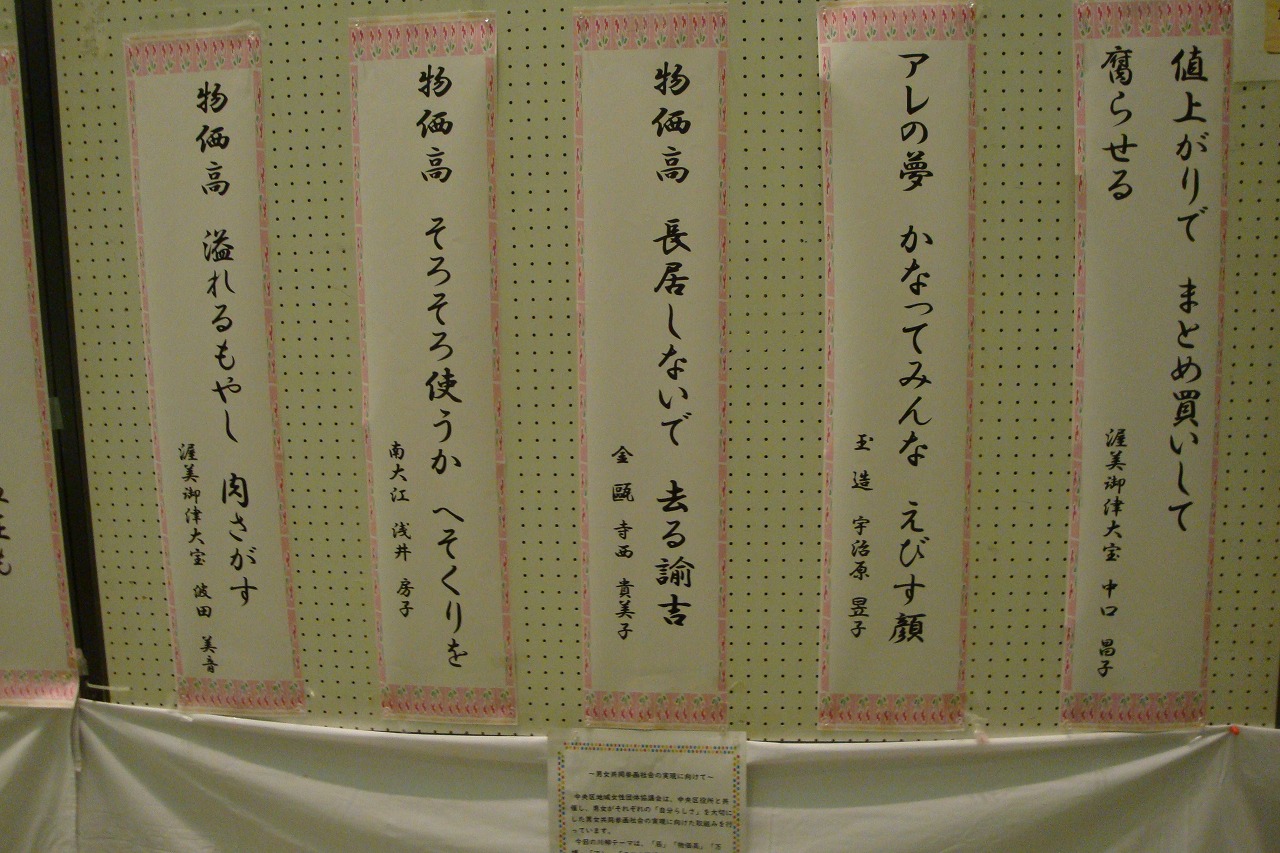 値上がりで まとめ買いして
腐らせる
渥美御津大宝 中口 昌子
アレの夢 かなってみんな えびす顔
玉造 宇治原 昱子
物価高 長居しないで 去る諭吉
金甌 寺西 貴美子
物価高 そろそろ使うか へそくりを
南大江 浅井 房子
物価高 溢れるもやし 肉さがす
渥美御津大宝 波田 美音
～男女共同参画社会の実現に向けて～
中央区地域女性団体協議会は、中央区役所と共
催し、男女がそれぞれの「自分らしさ」を大切に
した男女共同参画社会の実現に向けた取組みを行
っています。
今回の川柳テーマは、「岳」「物価高」「万